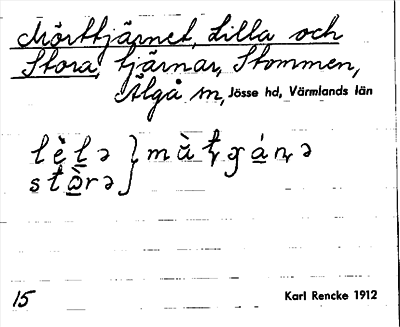 Mörttjärnet, Lilla och
Stora, tjärnar, Stommen,
Älgå sn, Jösse hd, Värmlands län
lèlə } mùt
stòrə
15
Karl Rencke 1912